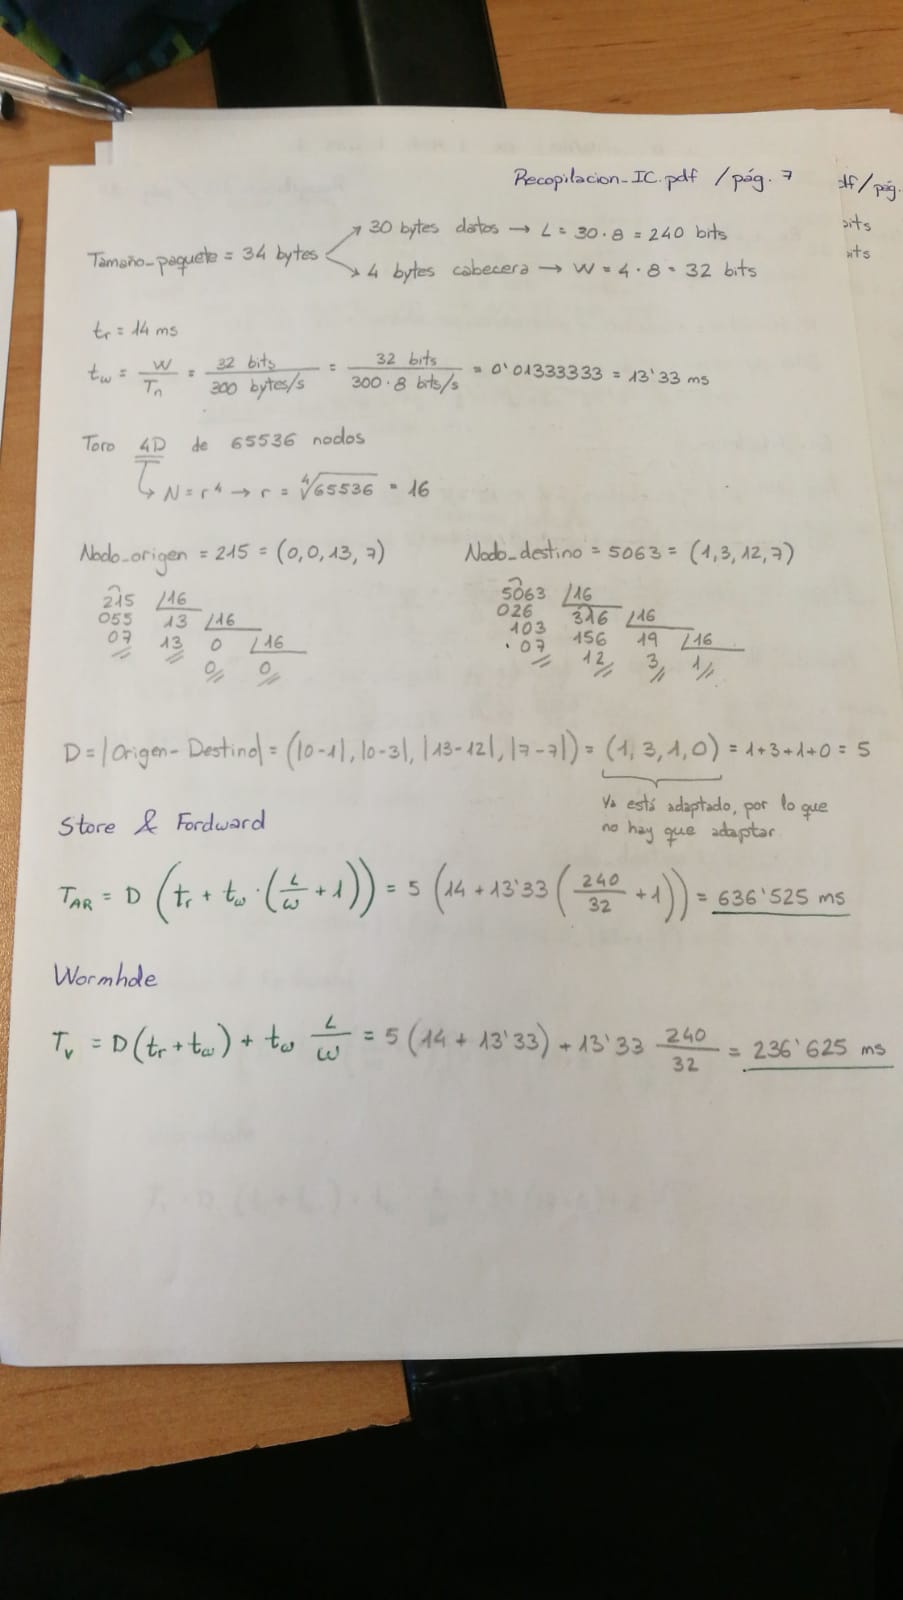 Recopilacion_IC.pdf / pág. 7
df/pág.
bits
bits
Tamaño_paquete = 34 bytes
↗ 30 bytes datos → L = 30·8 = 240 bits
↘ 4 bytes cabecera → W = 4·8 = 32 bits
tr = 14 ms
tw = W/Tn = 32 bits / 300 bytes/s = 32 bits / 300·8 bits/s = 0'01333333 = 13'33 ms
Toro 4D de 65536 nodos
↳ N = r⁴ → r = ⁴√65536 = 16
Nodo_origen = 215 = (0,0,13,7)
215 /16
055 13 /16
07 13 0 /16
0 0
Nodo_destino = 5063 = (1,3,12,7)
5063 /16
026 316 /16
103 156 19 /16
·07 12 3 1
D = |Origen - Destino| = (|0-1|, |0-3|, |13-12|, |7-7|) = (1, 3, 1, 0) = 1+3+1+0 = 5
Ya está adaptado, por lo que
no hay que adaptar
Store & Fordward
TAR = D (tr + tw · (L/w + 1)) = 5 (14 + 13'33 (240/32 + 1)) = 636'525 ms
Wormhole
Tv = D(tr + tw) + tw L/w = 5 (14 + 13'33) + 13'33 240/32 = 236'625 ms